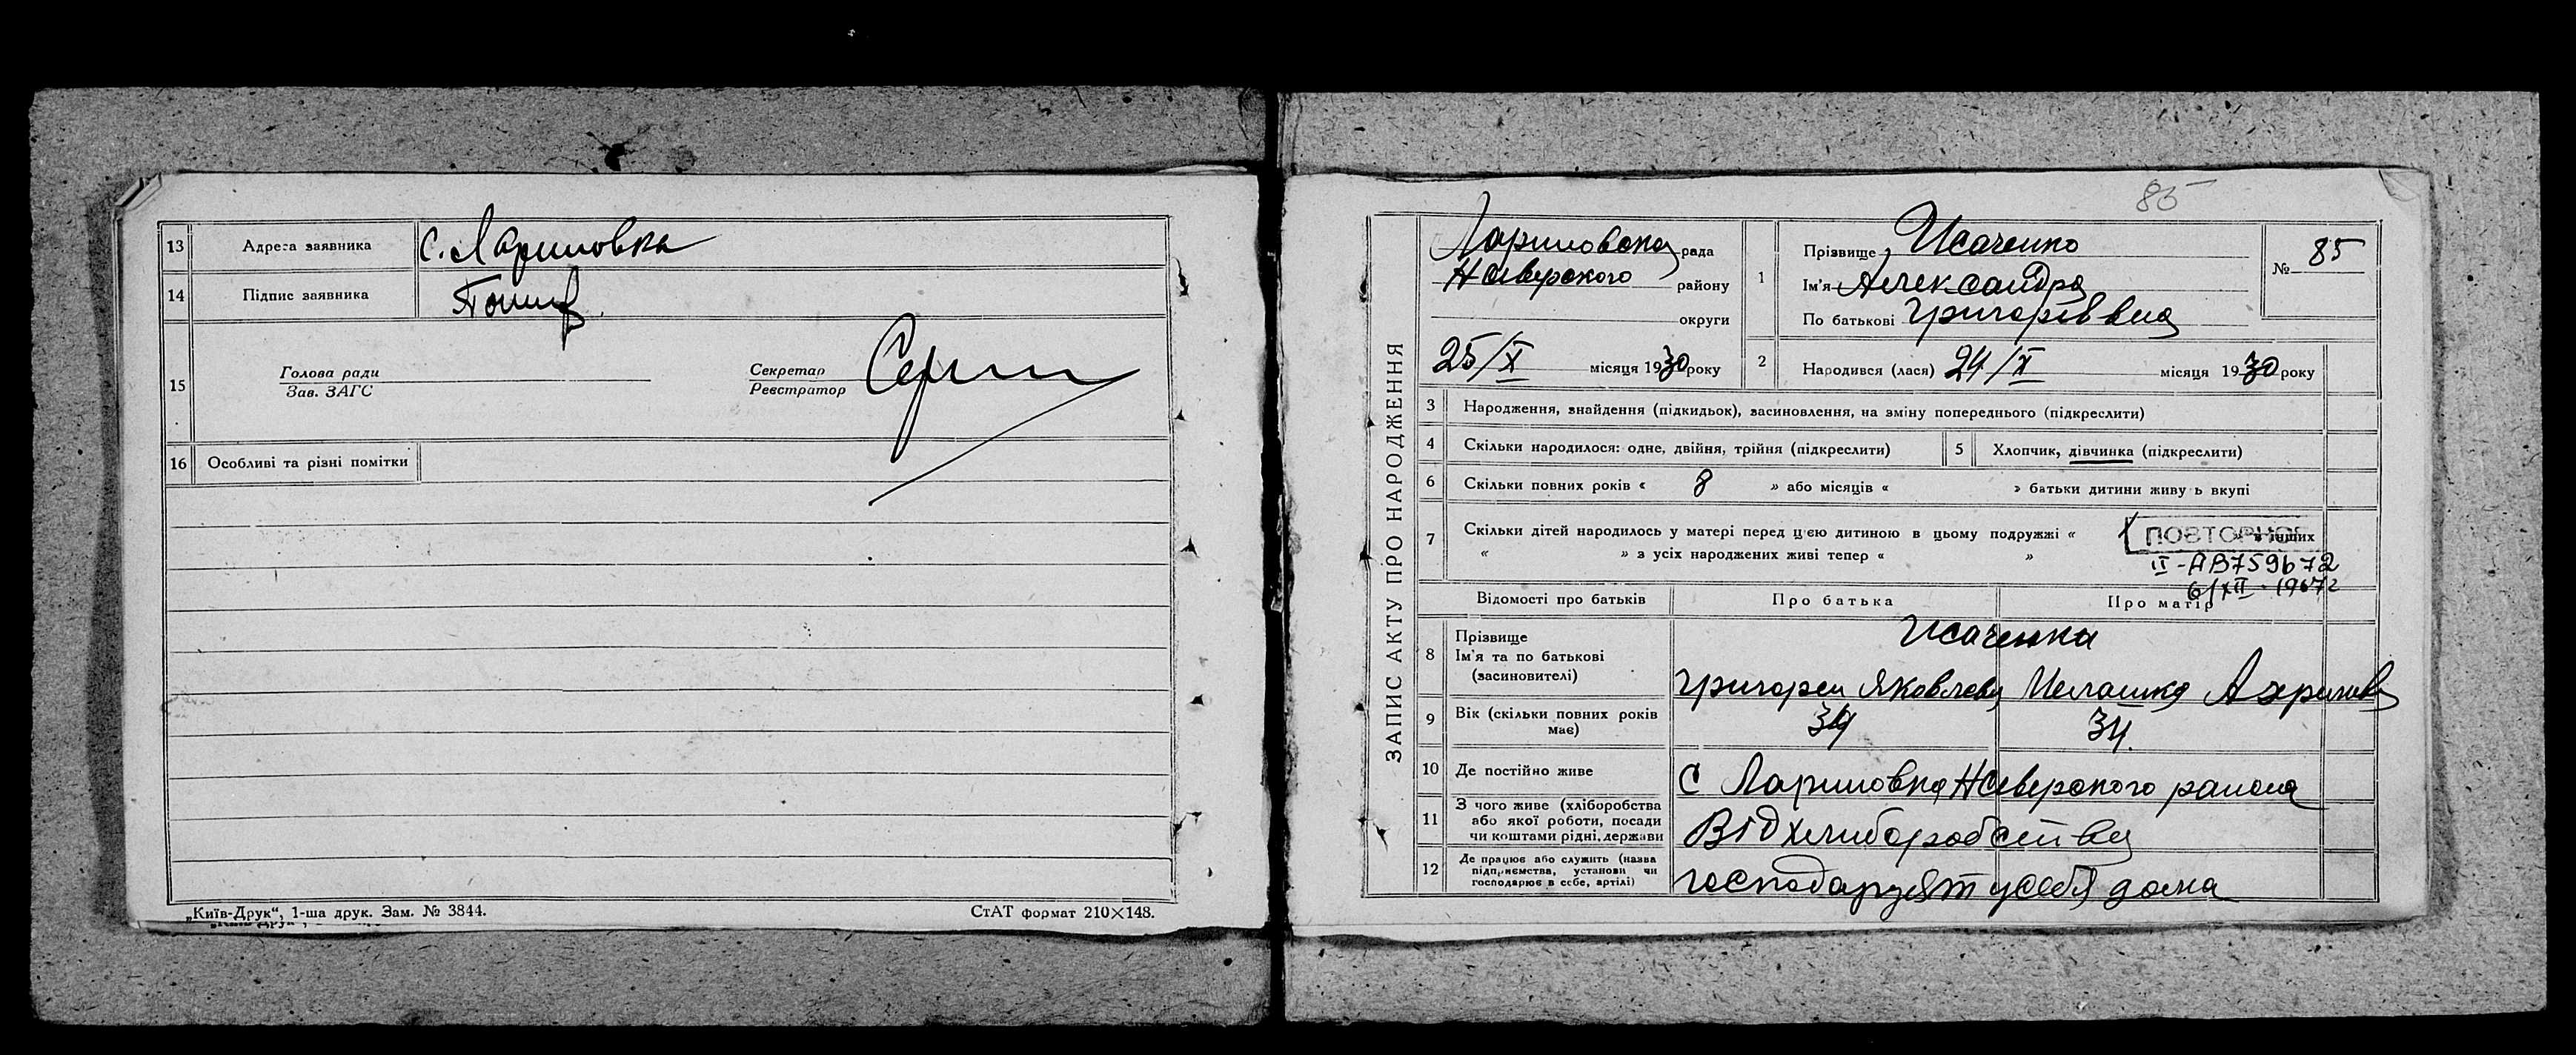 13 Адреса заявника с. Лариновка
14 Підпис заявника
15 Голова ради
Зав. ЗАГС
Секретар
Реєстратор
16 Особливі та різні помітки
„Київ-Друк“, 1-ша друк. Зам. № 3844.
СтАТ формат 210×148.
85
ЗАПИС АКТУ ПРО НАРОДЖЕННЯ
Лариновска рада
Нсіверского району
округи
25/X місяця 1930 року
1 Прізвище Исаченко
Ім'я Александра
По батькові Григорівна
№ 85
2 Народився (лася) 24/X місяця 1930 року
3 Народження, знайдення (підкидьок), засиновлення, на зміну попереднього (підкреслити)
4 Скільки народилося: одне, двійня, трійня (підкреслити)
5 Хлопчик, дівчинка (підкреслити)
6 Скільки повних років « 8 » або місяців « » батьки дитини живуть вкупі
7 Скільки дітей народилось у матері перед цією дитиною в цьому подружжі « » в інших
« » з усіх народжених живі тепер « »
ПОВТОРНОЕ
II-АВ759672
6/XII-1967г
Відомості про батьків
Про батька
Про матір
8 Прізвище
Ім'я та по батькові
(засиновителі)
Исаченки
Григорей Яковлев
9 Вік (скільки повних років має) 34 34.
10 Де постійно живе С Лариновка Нсіверского района
11 З чого живе (хліборобства
або якої роботи, посади
чи коштами рідні, держави
Від хлиборобства
12 Де працює або служить (назва
підприємства, установи чи
господарює в себе, артілі)
господарують у себя дома